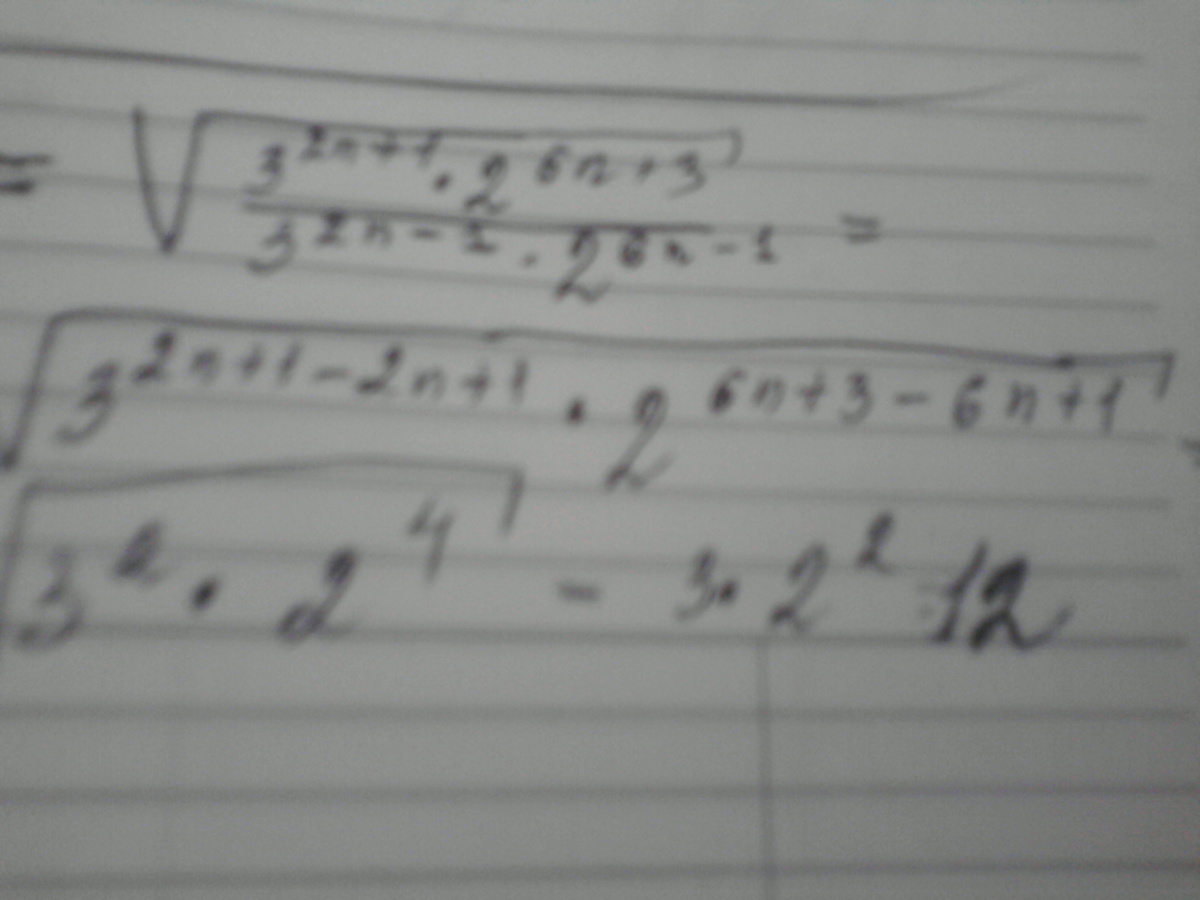 = √(3^(2n+1) · 2^(6n+3) / 3^(2n-1) · 2^(6n-1)) =
√(3^(2n+1-2n+1) · 2^(6n+3-6n+1)) =
√(3^2 · 2^4) = 3 · 2^2 = 12